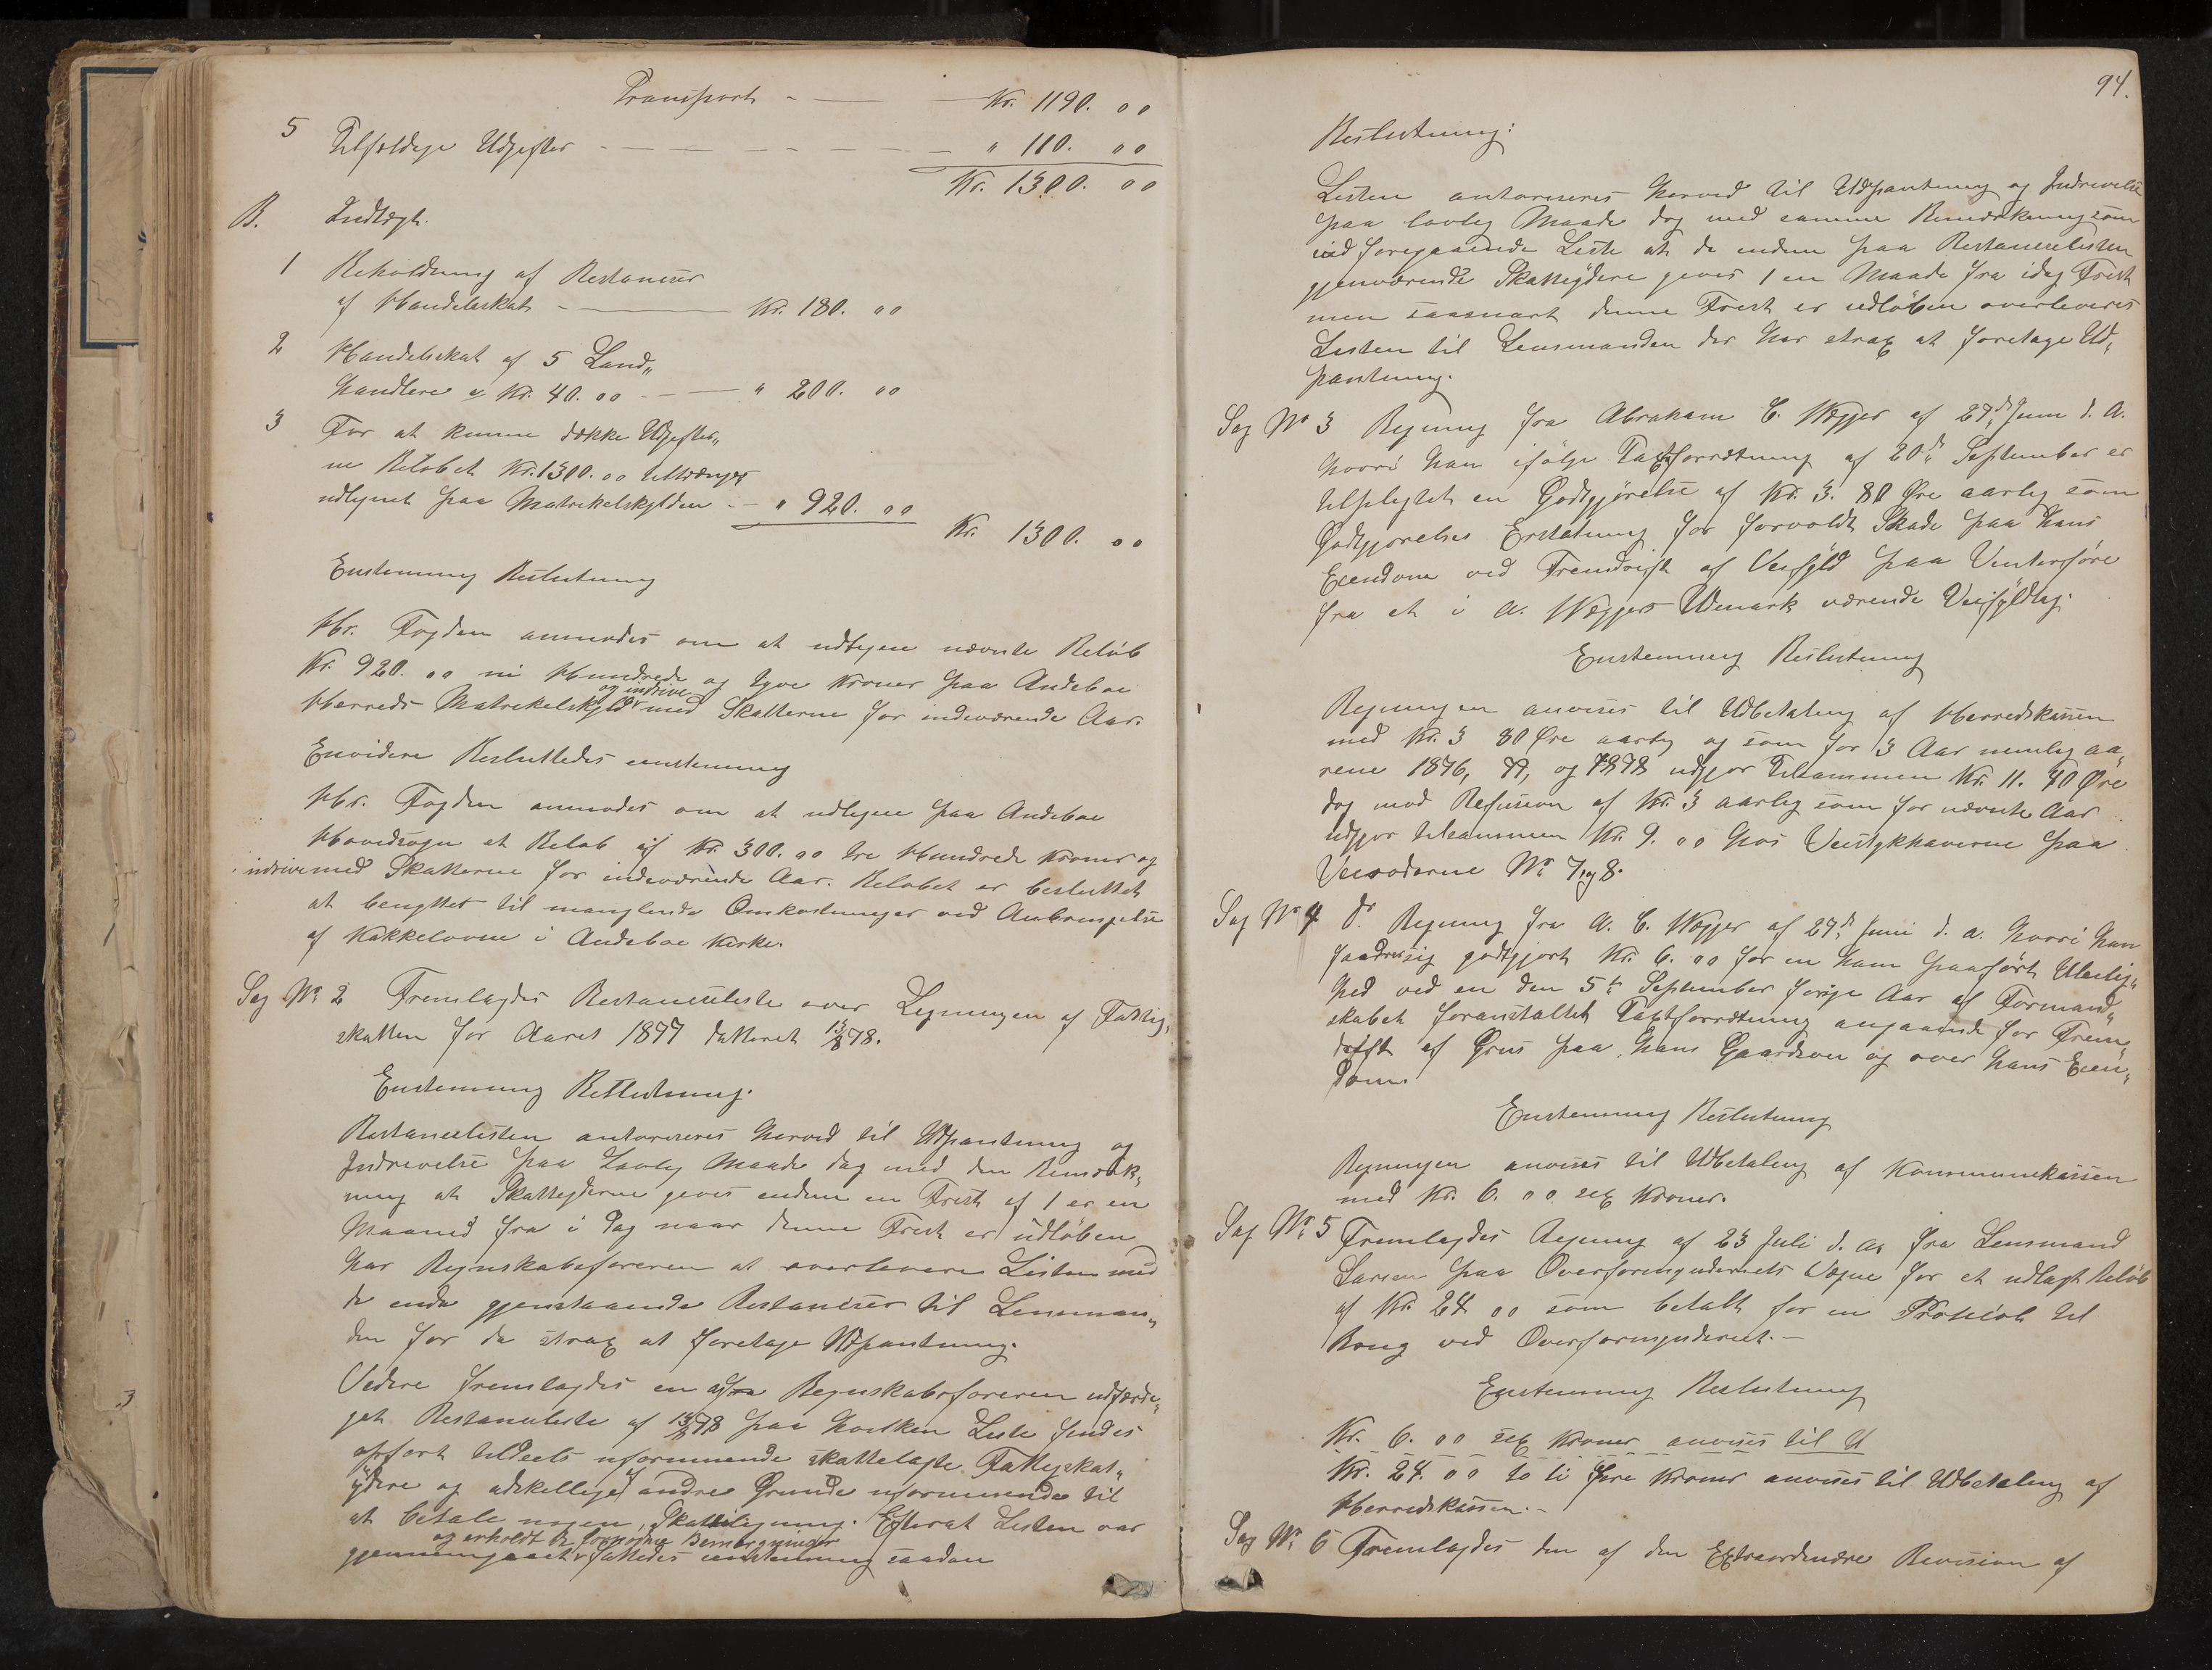 Transport - — Kr. 1190. 00
5 Tilfeldige Udgifter - — — — — — " 110. 00
Kr. 1300. 00
B. Indtægt.
1 Beholdning af Restancer
af Handelsskat - — Kr. 180. 00
2 Handelsskat af 5 Land„
handlere a Kr. 40. 00 - — " 200. 00
3 For at kunne dække Udgifter„
ne Beløbet Kr. 1300. 00 tiltrænges
udlignet paa Matrikelskylden - — " 920. 00
Kr. 1300. 00
Enstemmig Beslutning
Hr. Fogden anmodes om at udligne nævnte Beløb
Kr. 920. 00 ni Hundrede og tyve Kroner paa Andebu
og indrive
Herreds Matrikelskyld v med Skatterne for indeværende Aar.
Envidere Besluttedes enstemmig
Hr. Fogden anmodes om at udligne paa Andebu
Hovedsogn et Beløb af Kr. 300. 00 tre Hundrede Kroner og
indrive med Skatterne for indeværende Aar. Beløbet er besluttet
at benyttes til manglende Omkostninger ved Anbringelse
af Kakkelovne i Andebu Kirke.
Sag No 2 Fremlagdes Restanceliste over Ligningen af Fattig„
skatten for Aaret 1877 datteret 13/8 78.
Enstemmig Beslutning.
Restancelisten autoriseres herved til Udpantning og
Inddrivelse paa Lovlig Maade dog med den Bemærk„
ning at Skatteyderne gives endnu en Frist af 1 er en
Maaned fra i Dag naar denne Frist er udløben
har Regnskabsføreren at overlevere Listen med
de enda gjenstaaende Restancer til Lensman„
den for da strax at foretage Udpantning.
Videre fremlagdes en af Regnskabsføreren udfærdi„
get Restanceliste af 13/8 78 paa hvilken Liste findes
opført tildeels uformuende skattelagte Fattigskat„
ydere og adskellige af andre Grunde uformuende til
at betale nogen Skatteligning. Efterat Listen var
og erholdt de fornødne Bemærgninger
gjennemgaaet v fattedes enstemmig saadan
94.
Beslutning:
Listen autoriseres herved til Udpantning og Inddrivelse
paa lovlig Maade dog med samme Bemærkning som
ved foregaaende Liste at de endnu paa Restancelisten
gjenværende Skatteydere gives 1 en Maade fra idag Frist
men saasnart denne Frist er udløben overleveres
Listen til Lensmanden der har strax at foretage Ud„
pantning.
Sag No 3 Regning fra Abraham C. Kjegger af 27de Juni d. A.
hvori han ifølge Taxtforretning af 20de September er
tilpligtet en Godtgjørelse af Kr. 3. 80 Øre aarlig som
Godtgjørelses Erstatning for forvoldt Skade paa hans
Eiendom ved Fremdrift af Veifyld paa Vinterføre
fra et i A. Udmark værende Veifyldtag.
Enstemmig Beslutning
Regningen anvises til Udbetaling af Herredskassen
med Kr. 3 80 Øre aarlig og som for 3 Aar nemlig Aa„
rene 1876, 77, og 1878 udgjør tilsammen Kr. 11. 40 Øre
dog mod Refusion af Kr. 3 aarlig som for nævnte Aar
udgjør tilsammen Kr. 9. 00 hos Veistykhaverne paa
Veiroderne No 7 og 8.
Sag No 4 Do Regning fra A. C. af 27de Juni d. a. hvori han
fordrer sig godtgjort Kr. 6. 00 for en ham paaført Uleilig„
hed ved en den 5te September forrige Aar af Formand„
skabet foranstaltet Taxtforretning angaaende for Frem„
drift af Grus paa hans Gaardsvei og over hans Eien„
dom.
Enstemmig Beslutning
Regningen anvises til Udbetaling af Kommunekassen
med Kr. 6. 00 sex Kroner.
Sag No 5 Fremlagdes Regning af 23 Juli d. A. fra Lensmand
Larsen paa Overformynderiets Vegne for et udlagt Beløb
af Kr. 24 00 som betalt for en Protocol til
Brug ved Overformynderiet. —
Enstemmig Beslutning
Kr. 6. 00 sex Kroner anvises til U
Kr. 24. 00 to ti fire Kroner anvises til Udbetaling af
Herredskassen. -
Sag No 6 Fremlagdes den af den Extraordinære Revision af